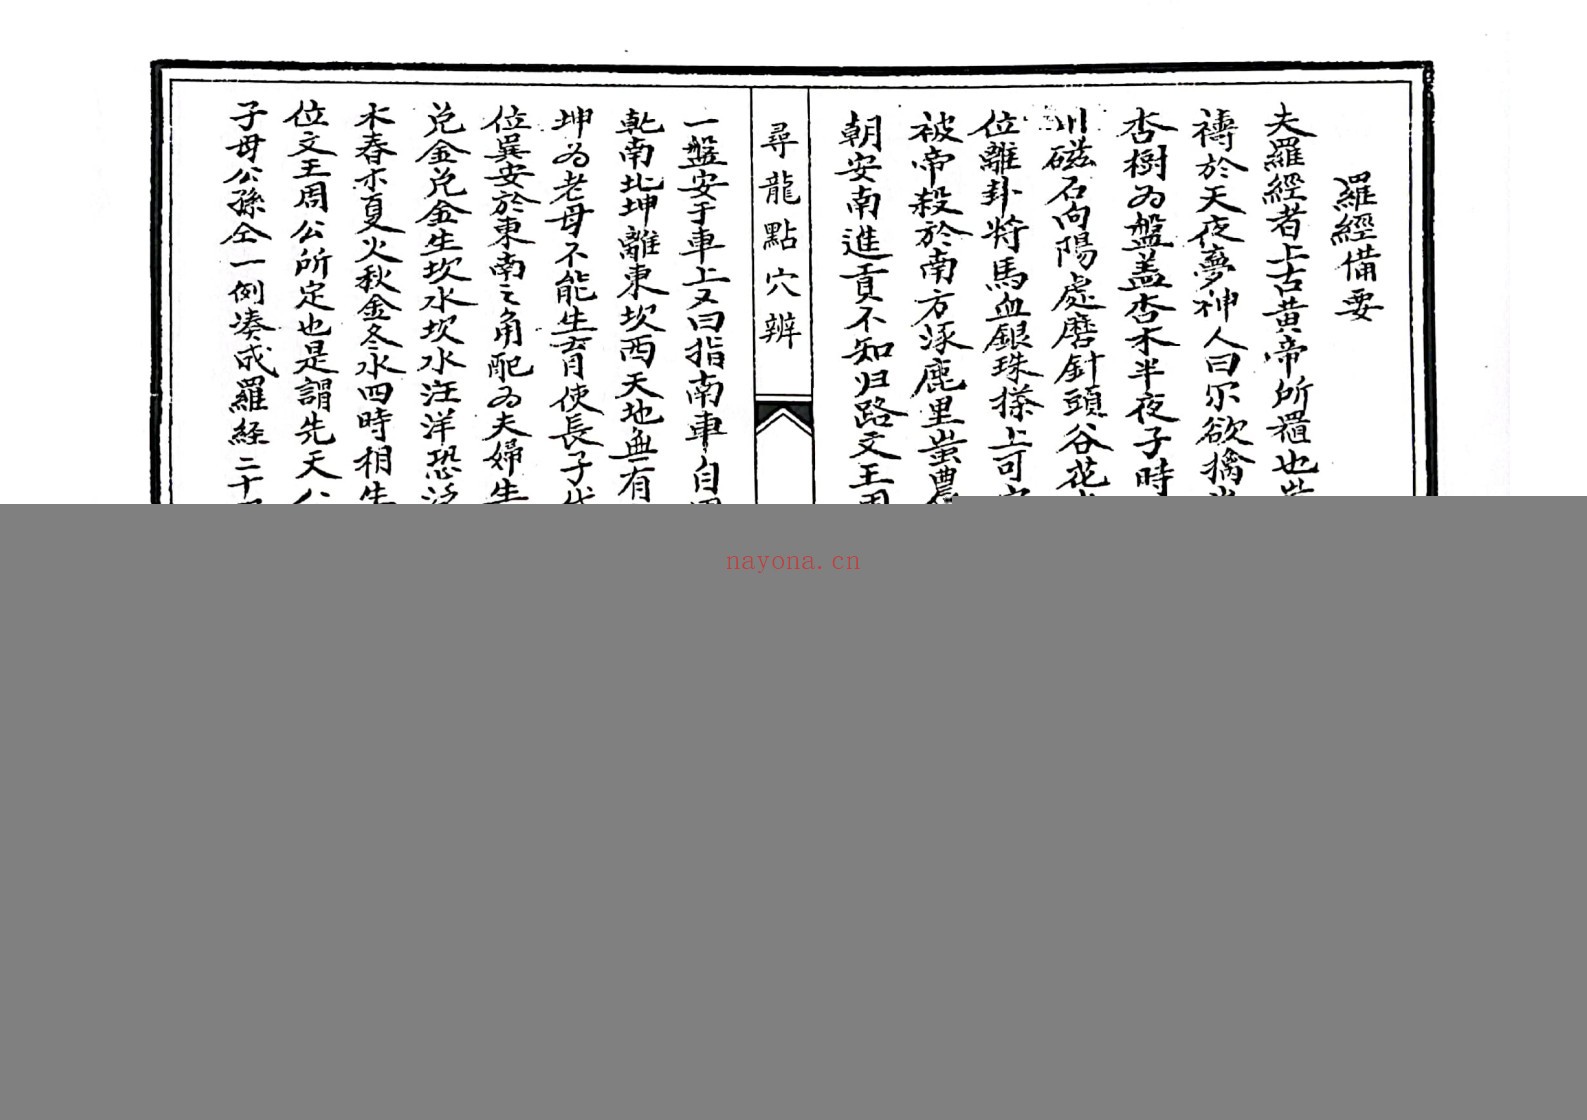 羅經備要
夫羅經者上古黄帝所置也
禱於天夜夢神人曰尔欲擒
杏樹为盤盖杏木半夜子時
磁石向陽處磨針頭谷花
位離卦將馬血銀珠搽上可
被帝殺於南方涿鹿里蚩農
朝安南進貢不知归路文王周
尋龍點穴辨
一盤安于車上又曰指南車自周
乾南北坤離東坎西天地無有
坤为老母不能生育使長子代
位巽安於東南之角配为夫婦生
兑金兑金生坎水坎水汪洋恐泛
木春木夏火秋金冬水四時相生
位文王周公所定也是謂先天八
子母公孫仝一例凑成羅経二十四
nayona.cn